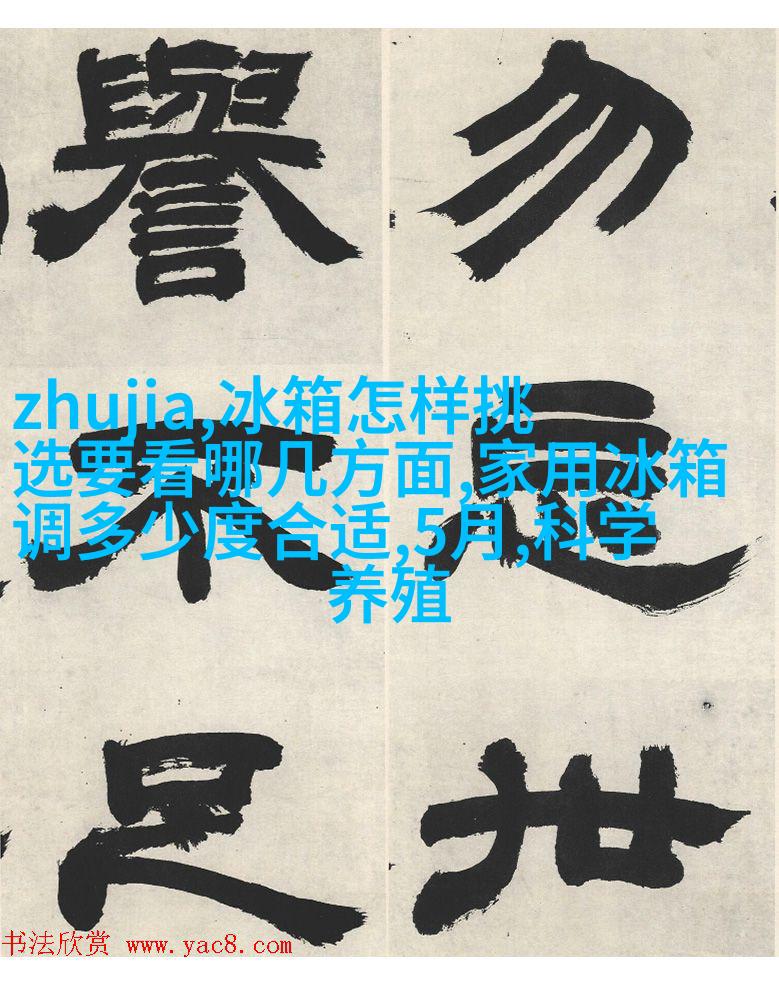 勿忘世
譽不足
zhujia,冰箱怎样挑
选要看哪几方面,家用冰箱
调多少度合适,5月,科学
养殖
书法欣赏 www.yac8.com